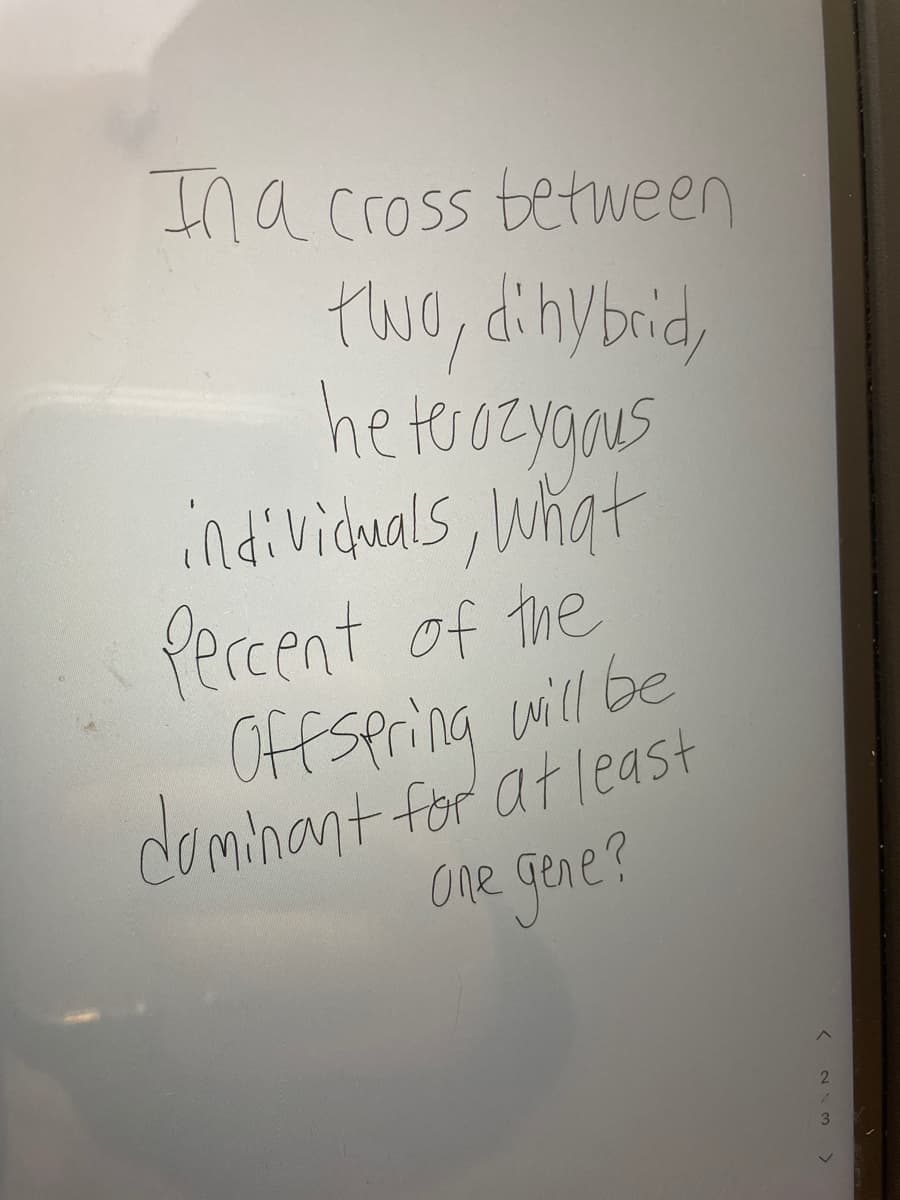 In a cross between
two, dihybrid,
heterozygous
individuals, what
Percent of the
Offspring will be
dominant for at least
one gene?
2
/
3